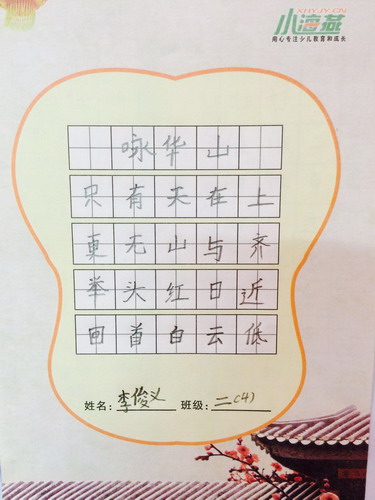 XHYJY.CN
小海燕
用心专注少儿教育和成长
咏华山
只有天在上
更无山与齐
举头红日近
回首白云低
姓名：李俊义 班级：二（4）